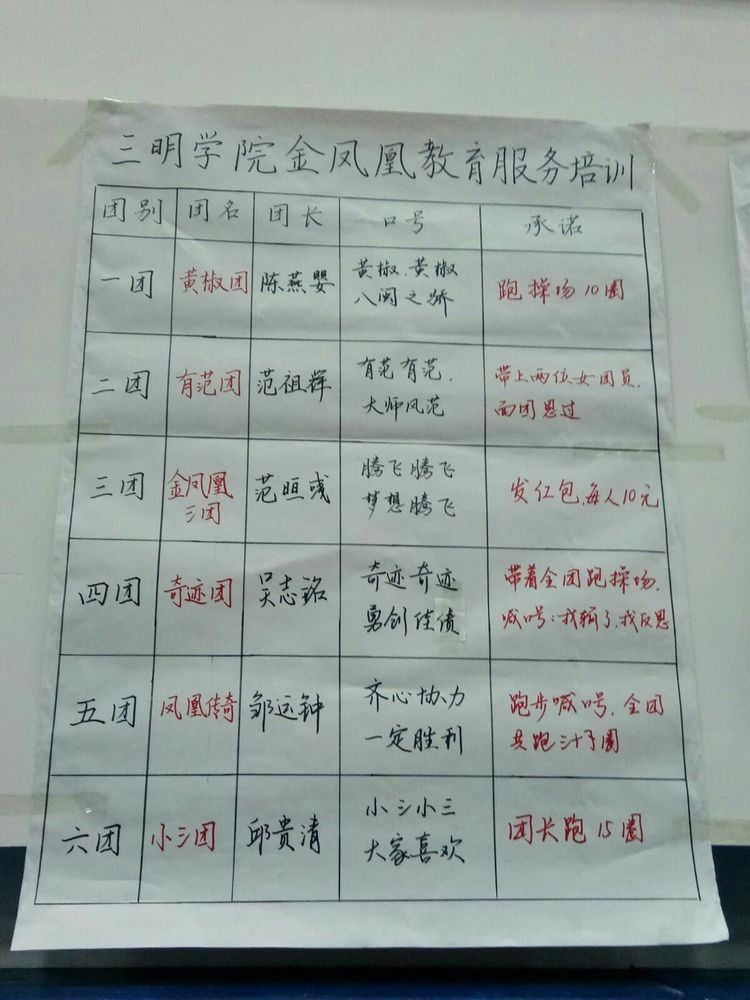 三明学院金凤凰教育服务培训
团别 团名 团长 口号 承诺
一团 黄椒团 陈燕婴 黄椒、黄椒
八闽之骄 跑操场10圈
二团 有范团 范祖群 有范有范，
大师风范 带上两位女团员，
面团思过
三团 金凤凰
三团 范晅彧 腾飞腾飞
梦想腾飞 发红包，每人10元
四团 奇迹团 吴志铭 奇迹奇迹
勇创佳绩 带着全团跑操场，
喊口号：我输了，我反思
五团 凤凰传奇 邹远钟 齐心协力
一定胜利 跑步喊口号，全团
共跑 圈
六团 小三团 邱贵清 小三小三
大家喜欢 团长跑15圈